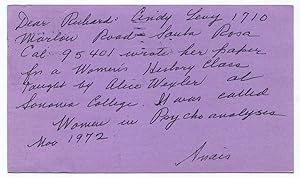 Dear Richard: Cindy Levy 1710
Marlow Road - Santa Rosa
Cal. 95401 wrote her paper
for a Women's History Class
taught by Alice Wexler at
Sonoma College. It was called
Women in Psychoanalysis
Nov 1972
Anaïs